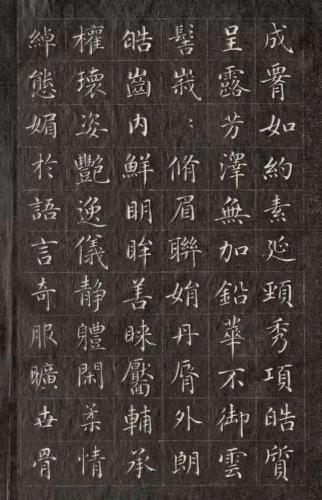 成腰如約素延頸秀項皓質
呈露芳澤無加鉛華不御雲
髻峩〻脩眉聯娟丹脣外朗
皓齒内鮮明眸善睞靨輔承
權瓌姿豔逸儀靜軆閑柔情
綽態媚於語言奇服曠世骨